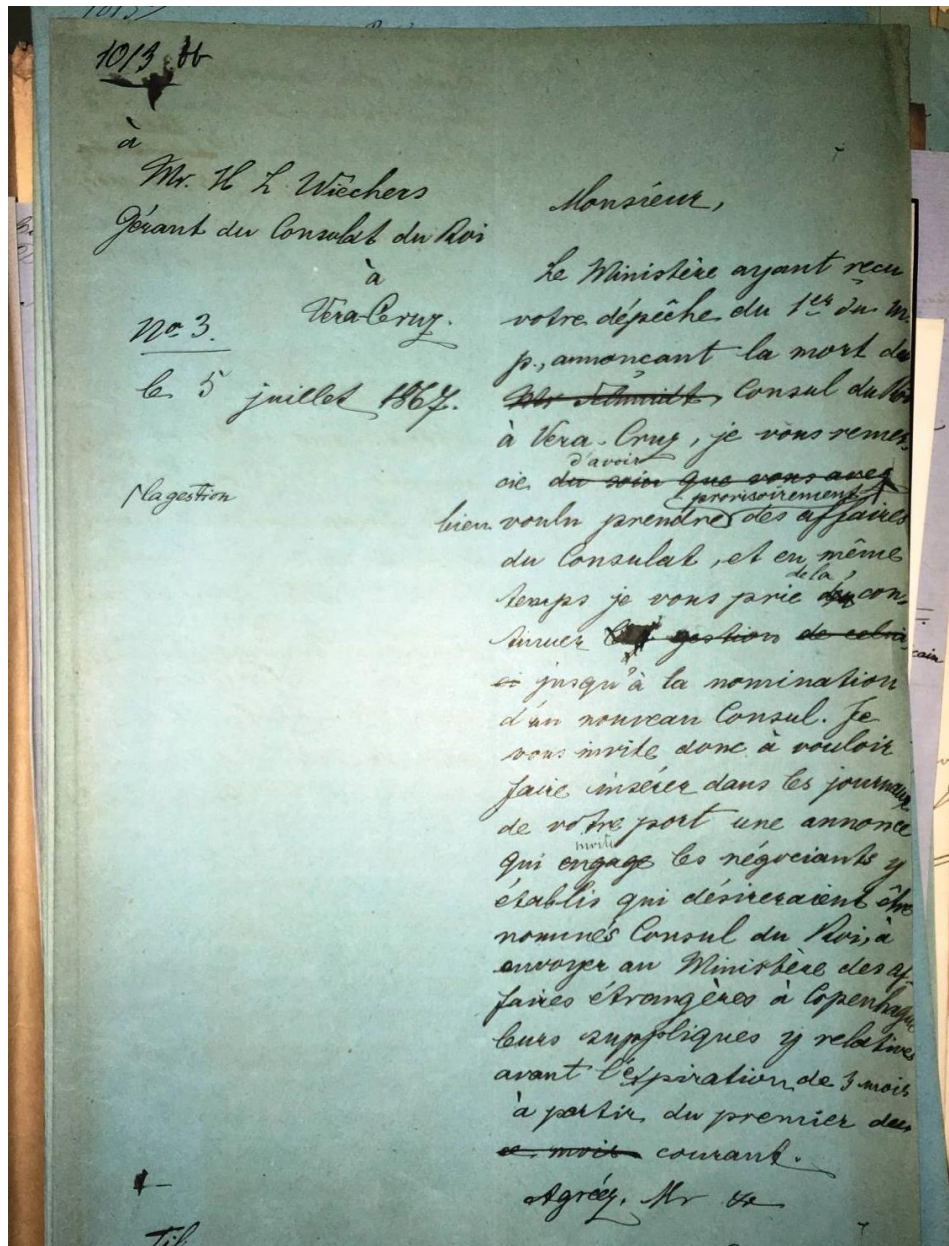 1013 bb
à
Mr. H L Wiechers
Gérant du Consulat du Roi
à
Vera-Cruz.
No 3.
le 5 juillet 1867.
Monsieur,
Le Ministère ayant reçu
votre dépêche du 1er du m.
p., annonçant la mort du
Mr Schmidt, Consul du Roi
à Vera-Cruz, je vous remer-
d'avoir
cie du soin que vous avez
provisoirement
la gestion
bien voulu prendre des affaires
du Consulat, et en même
de la
temps je vous prie de con-
tinuer gestion de celui-
ci jusqu'à la nomination
d'un nouveau Consul. Je
vous invite donc à vouloir
faire insérer dans les journaux
de votre port une annonce
invite
qui engage les négociants y
établis qui désireraient être
nommés Consul du Roi, à
envoyer au Ministère des af-
faires étrangères à Copenhague
leurs suppliques y relatives
avant l'expiration de 3 mois
à partir du premier du
ce mois courant.
Agréez, Mr &c